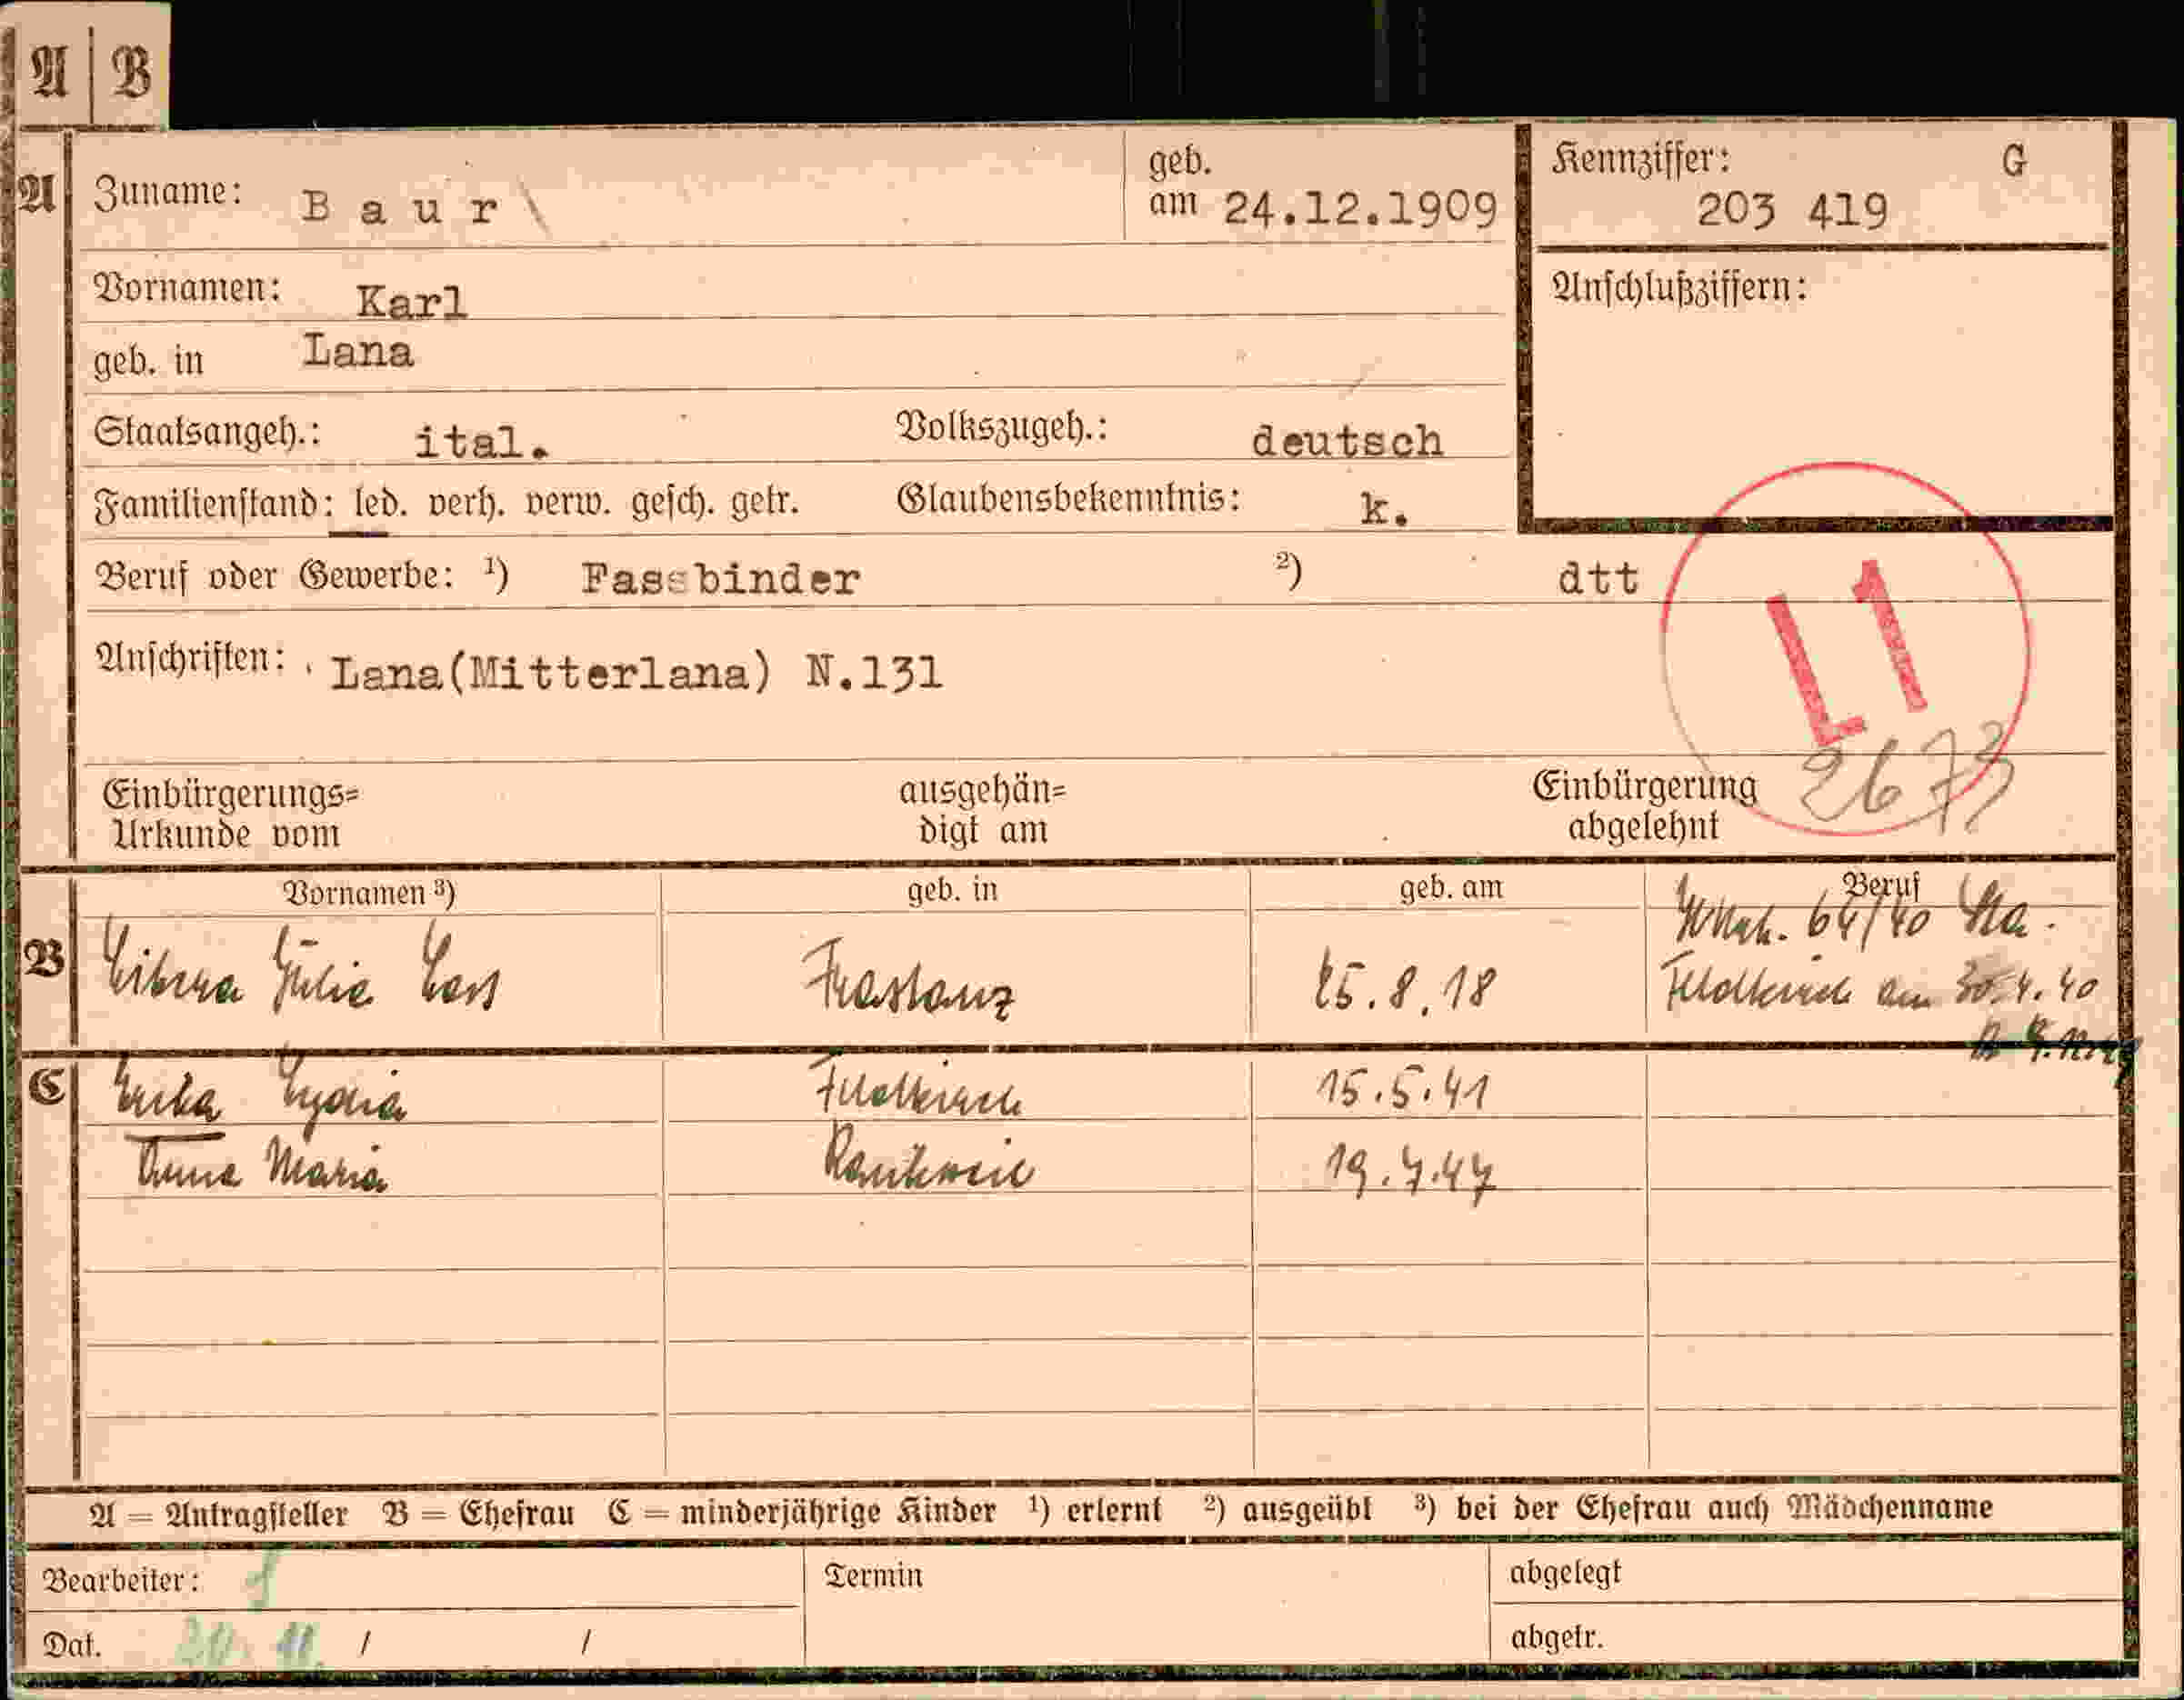 A | B
A Zuname: Baur geb. am 24.12.1909
Kennziffer: G
203 419
Vornamen: Karl
Anschlußziffern:
geb. in Lana
Staatsangeh.: ital. Volkszugeh.: deutsch
Familienstand: led. verh. verw. gesch. getr. Glaubensbekenntnis: k.
Beruf oder Gewerbe: ¹) Fassbinder ²) dtt
L1
Anschriften: Lana(Mitterlana) N.131
2673
Einbürgerungs=
Urkunde vom
ausgehän=
digt am
Einbürgerung
abgelehnt
Vornamen ³) geb. in geb. am Beruf
64/40 Sta.
B Julia Frastanz 25.8.18 Feldkirch am 30.4.40
C Erika Lydia Feldkirch 15.5.41
Anna Maria Rankweil 19.7.47
A = Antragsteller B = Ehefrau C = minderjährige Kinder ¹) erlernt ²) ausgeübt ³) bei der Ehefrau auch Mädchenname
Bearbeiter: Termin abgelegt
Dat. 20. 11. / / abgetr.